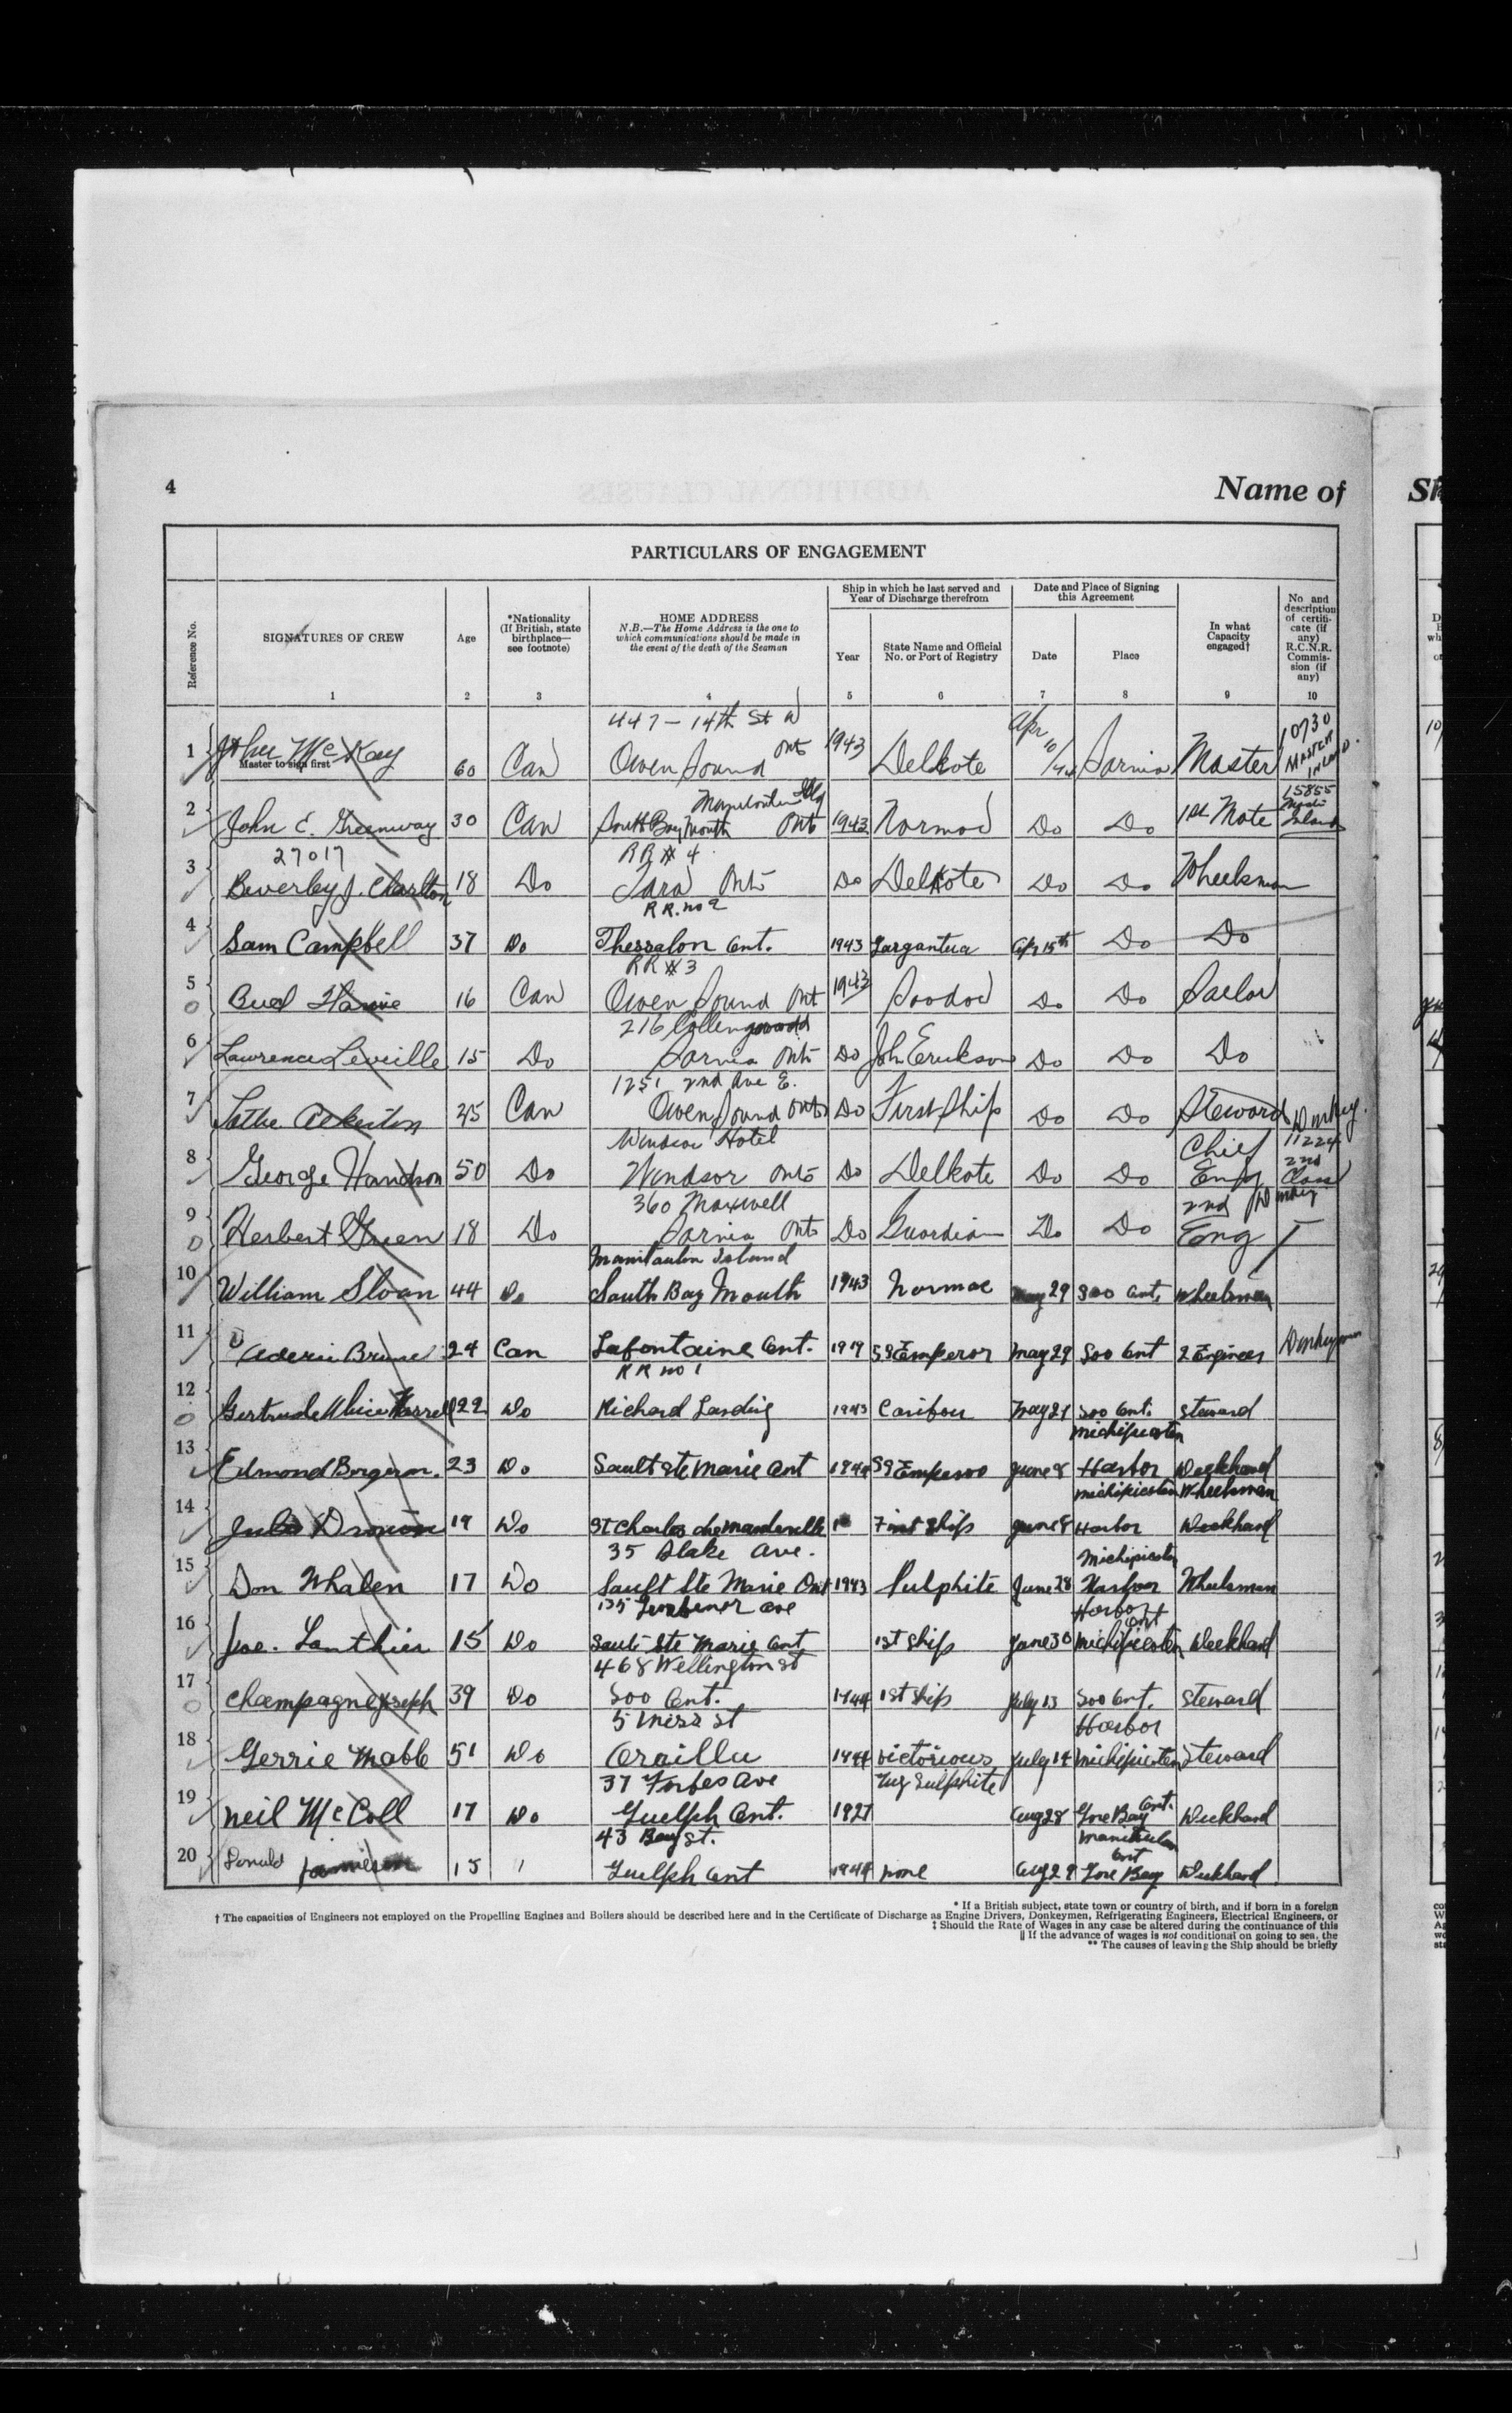 4
Name of
PARTICULARS OF ENGAGEMENT
Reference No.
SIGNATURES OF CREW
Age
*Nationality
(If British, state
birthplace—
see footnote)
HOME ADDRESS
N.B.—The Home Address is the one to
which communications should be made in
the event of the death of the Seaman
Ship in which he last served and
Year of Discharge therefrom
Year
State Name and Official
No. or Port of Registry
Date and Place of Signing
this Agreement
Date
Place
In what
Capacity
engaged†
No and
description
of certifi-
cate (if
any)
R.C.N.R.
Commis-
sion (if
any)
1 2 3 4 5 6 7 8 9 10
447 - 14th St W
1 John McKay 60 Can Owen Sound Ont 1943 Delkote Apr 10/44 Sarnia Master 10730 Master Inland
Master to sign first
2 John E. Greenway 30 Can South Bay Mouth Ont 1943 Normac Do Do 1st Mate 15855
27017 RR # 4
3 Beverley J. Charlton 18 Do Tara Ont Do Delkote Do Do Wheelsman
RR. no 2
4 Sam Campbell 37 Do Thessalon Ont. 1943 Gargantua Apr 15th Do Do
RR # 3
5 16 Can Owen Sound Ont 1943 Soodoc Do Do Sailor
216 Collingwood
6 Lawrence Leveille 15 Do Sarnia Ont Do John Erickson Do Do Do
1251 2nd Ave E.
7 45 Can Owen Sound Ont Do First Ship Do Do Steward
Windsor Hotel
8 George 50 Do Windsor Ont Do Delkote Do Do Chief Eng 11224 2nd Class
360 Maxwell
9 Herbert Green 18 Do Sarnia Ont Do Guardian Do Do 2nd Eng
Manitoulin Island
10 William Sloan 44 Do South Bay Mouth 1943 Normac May 29 Soo Ont. Wheelsman
11 24 Can Lafontaine Ont. SS Emperor May 29 Soo Ont 2 Engineer Donkeyman
RR no 1
12 Gertrude 22 Do Richard Landing 1943 Caribou May 29 Soo Ont. Steward
13 Edmond Bergeron. 23 Do Sault Ste Marie Ont 1944 SS Emperor June 8 Michipicoten Harbor Deckhand
14 19 Do St Charles de Mandeville First Ship June 8 Michipicoten Harbor Wheelsman Deckhand
35 Blake Ave.
15 Don Whalen 17 Do Sault Ste Marie Ont 1943 Sulphite June 28 Michipicoten Harbor Wheelsman
16 Joe. Lanthier 15 Do Sault Ste Marie Ont 1st Ship June 30 Harbor Michipicoten Ont Deckhand
468 Wellington St
17 Champagne Joseph 39 Do Soo Ont. 1944 1st Ship July 13 Soo Ont. Steward
18 Gerrie Mabb 51 Do Orillia 1944 Victorious July 14 Harbor Michipicoten Steward
37 Forbes Ave Tug Sulphite
19 Neil McColl 17 Do Guelph Ont. 1927 Aug 28 Gore Bay Ont. Deckhand
43 Bay St.
20 Donald Jamieson 15 Guelph Ont 1944 none Aug 29 Manitoulin Ont Gore Bay Deckhand
* If a British subject, state town or country of birth, and if born in a foreign
† The capacities of Engineers not employed on the Propelling Engines and Boilers should be described here and in the Certificate of Discharge as Engine Drivers, Donkeymen, Refrigerating Engineers, Electrical Engineers, or
‡ Should the Rate of Wages in any case be altered during the continuance of this
|| If the advance of wages is not conditional on going to sea, the
** The causes of leaving the Ship should be briefly